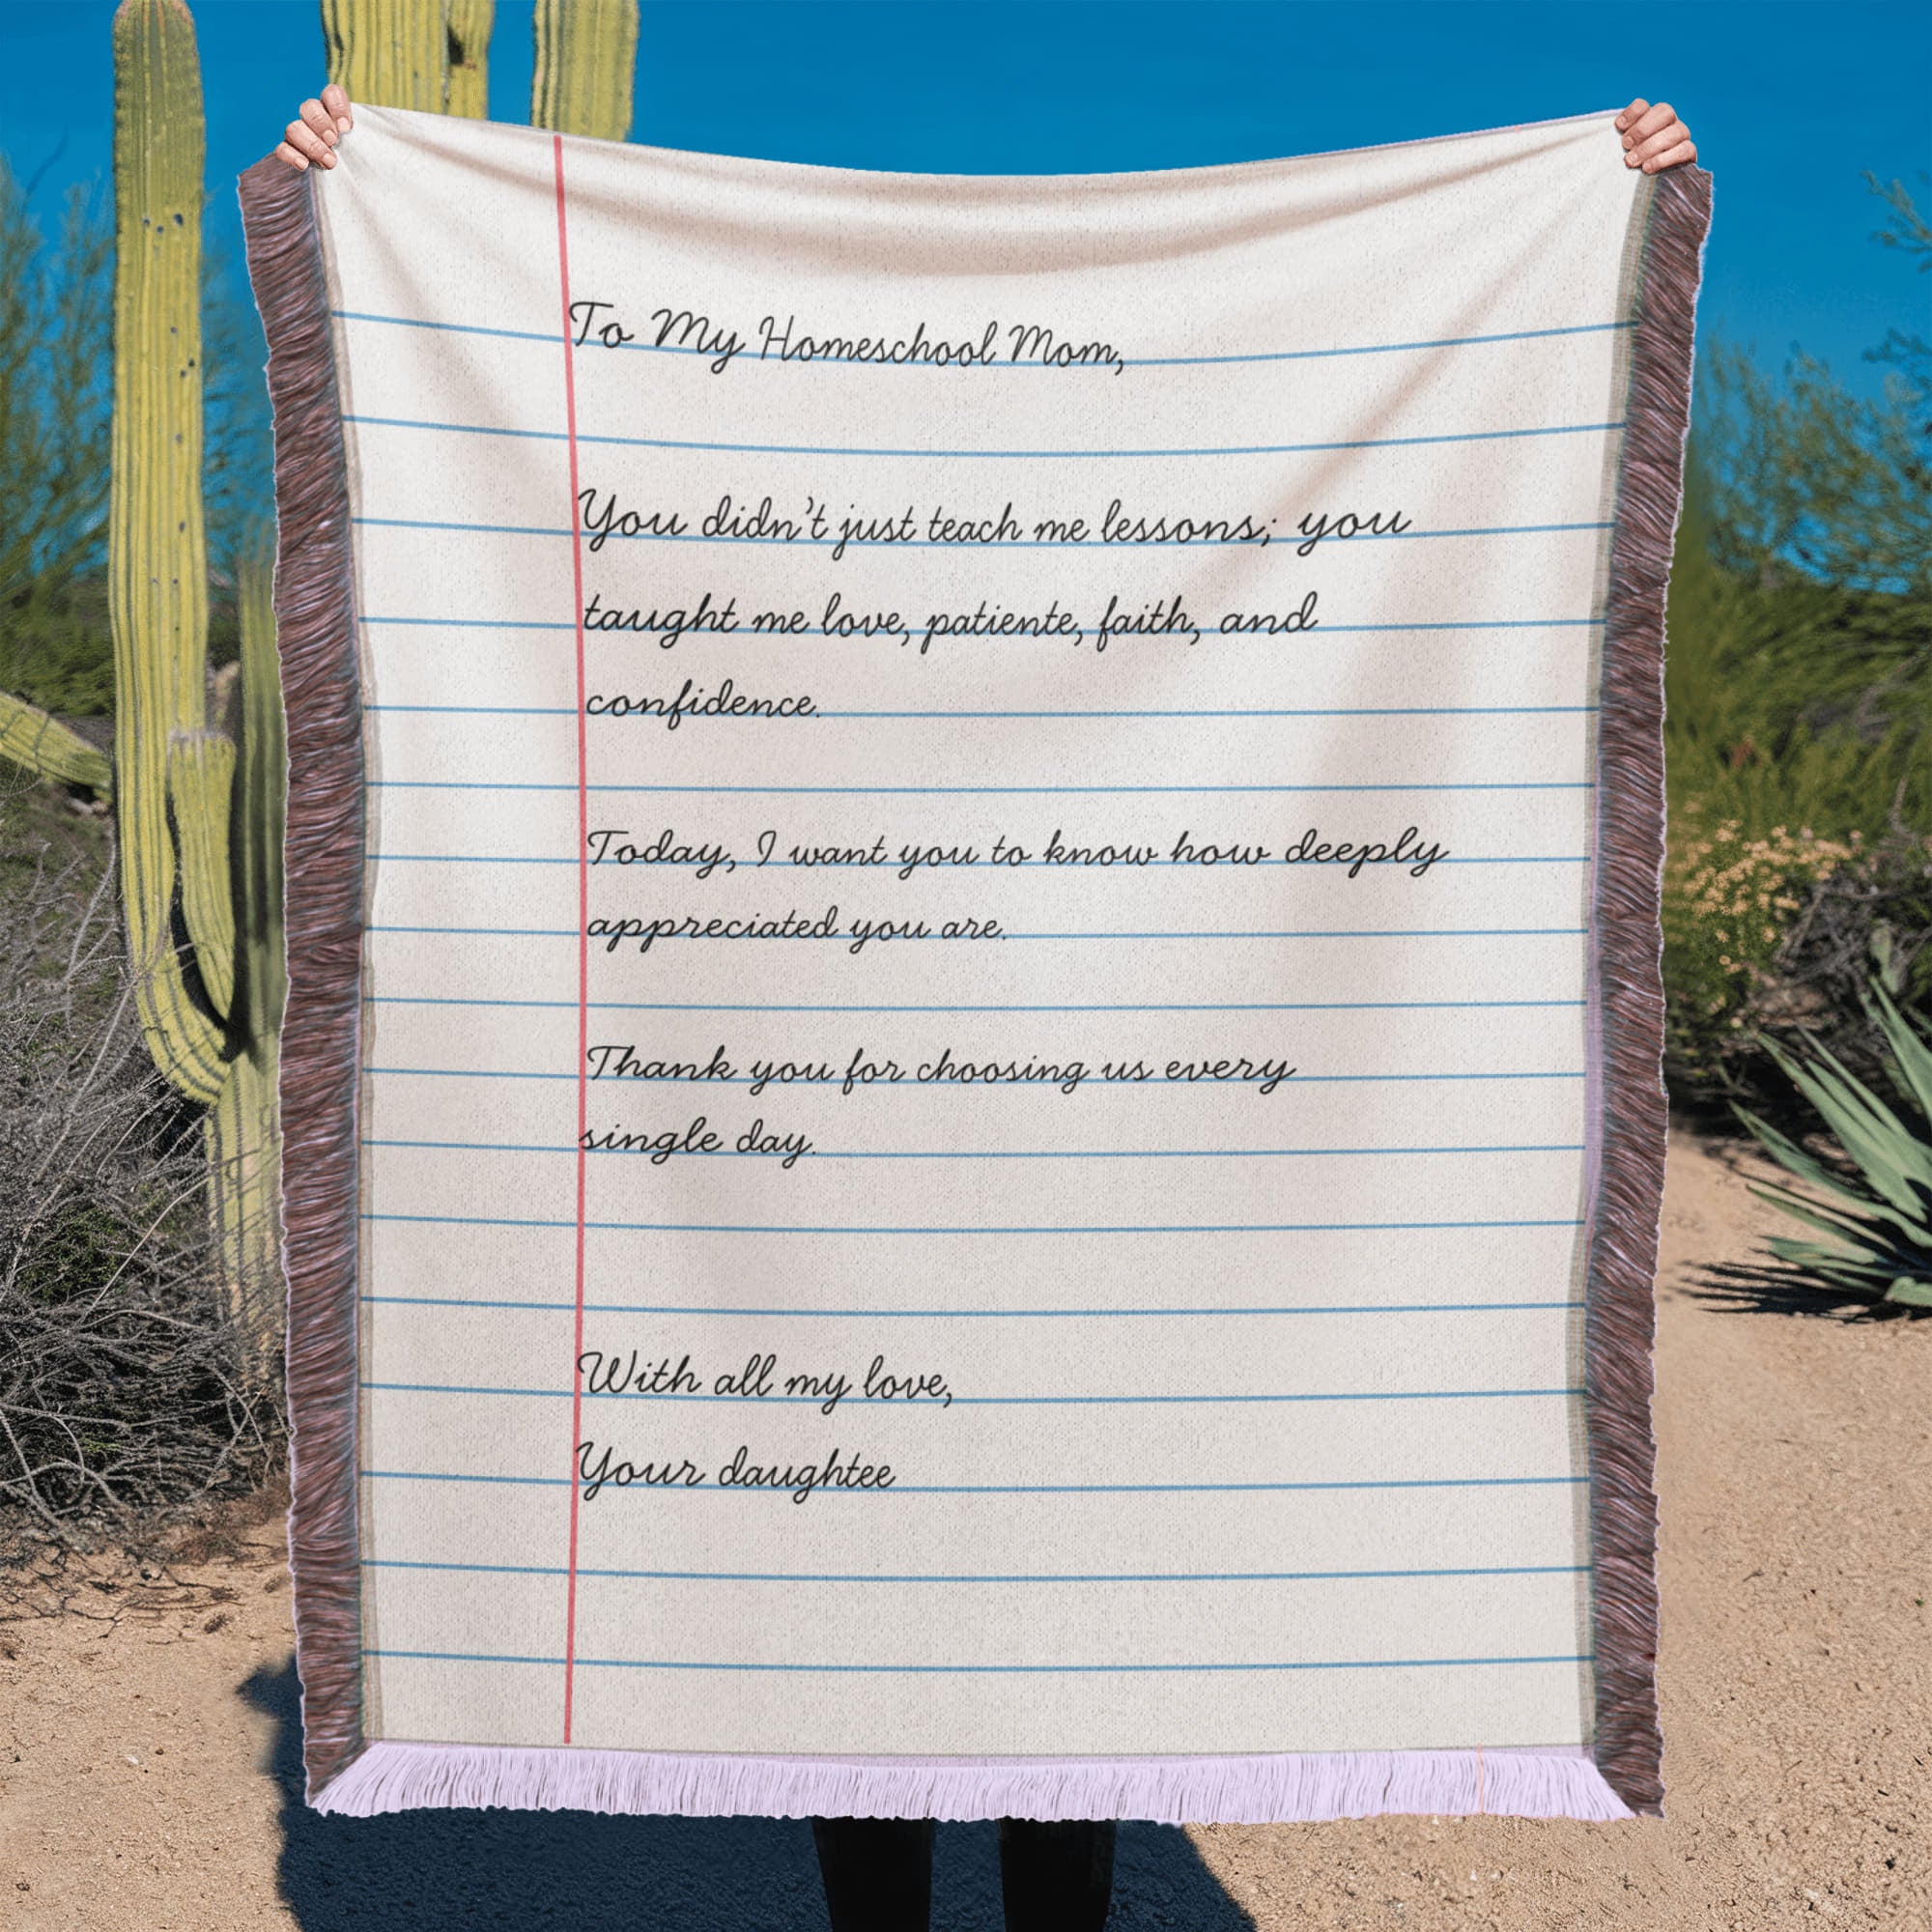 To My Homeschool Mom,
You didn't just teach me lessons; you
taught me love, patiente, faith, and
confidence.
Today, I want you to know how deeply
appreciated you are.
Thank you for choosing us every
single day.
With all my love,
Your daughtee